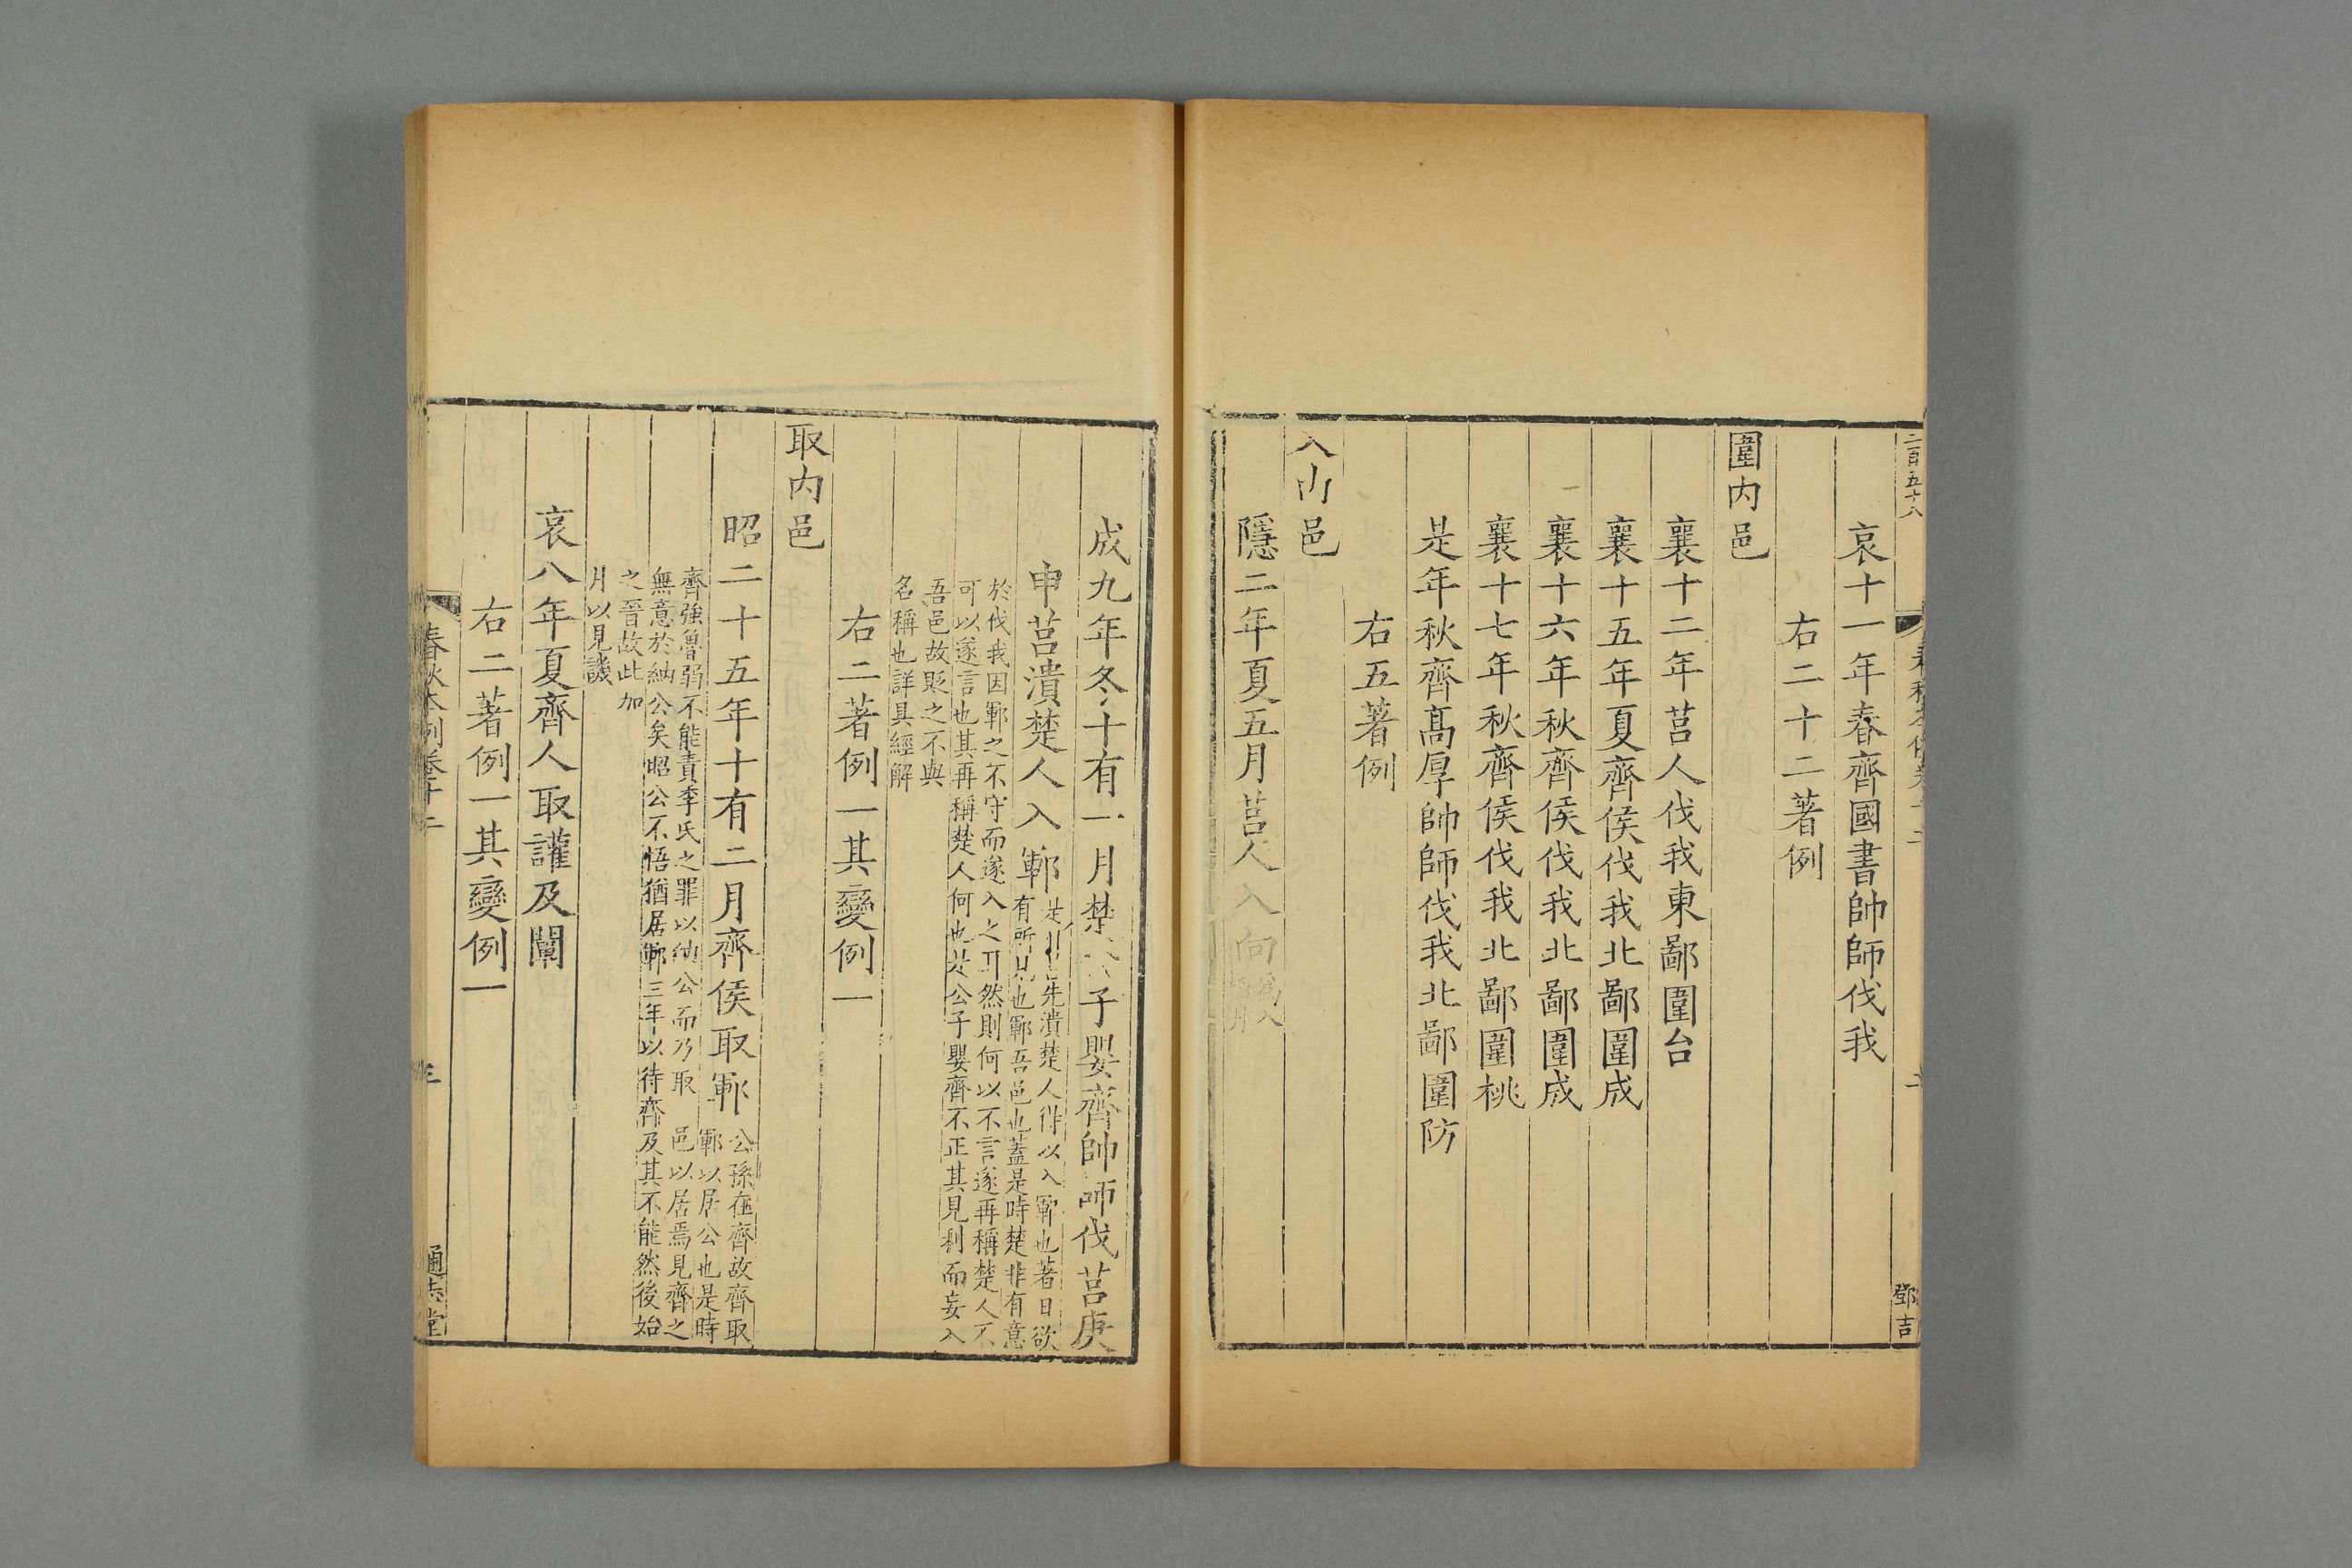 二百五十八
哀十一年春齊國書帥師伐我
右二十二著例
圍内邑
襄十二年莒人伐我東鄙圍台
襄十五年夏齊侯伐我北鄙圍成
襄十六年秋齊侯伐我北鄙圍成
襄十七年秋齊侯伐我北鄙圍桃
是年秋齊髙厚帥師伐我北鄙圍防
右五著例
入内邑
隱二年夏五月莒人入向
鄧吉
成九年冬十有一月楚公子嬰齊帥師伐莒庚
申莒潰楚人入鄆
先潰楚人得以入鄆也著日欲
有所見也鄆吾邑也蓋是時楚非有意
於伐我因鄆之不守而遂入之耳然則何以不言遂再稱楚人不
可以遂言也其再稱楚人何也是公子嬰齊不正其見利而妄入
吾邑故貶之不與
名稱也詳具經解
右二著例一其變例一
取内邑
昭二十五年十有二月齊侯取鄆
公孫在齊故齊取
鄆以居公也是時
齊強魯弱不能責季氏之罪以納公而乃取 邑以居焉見齊之
無意於納公矣昭公不悟猶居鄆三年以待齊及其不能然後始
之晉故此加
月以見譏
哀八年夏齊人取讙及闡
右二著例一其變例一
春秋本例卷十二
三
通志堂